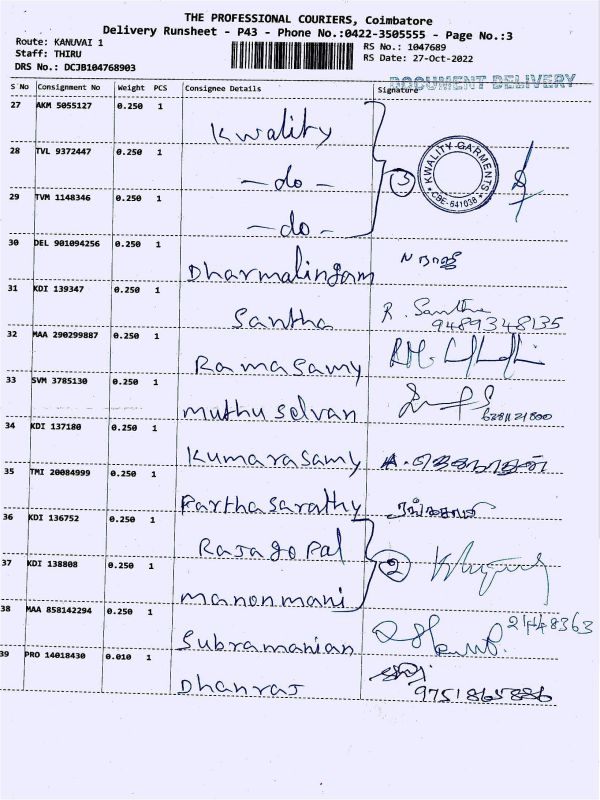 THE PROFESSIONAL COURIERS, Coimbatore
Delivery Runsheet - P43 - Phone No.:0422-3505555 - Page No.:3
Route: KANUVAI 1
Staff: THIRU
DRS No.: DCJB104768903
RS No.: 1047689
RS Date: 27-Oct-2022
DOCUMENT DELIVERY
S No Consignment No Weight PCS Consignee Details Signature
27 AKM 5055127 0.250 1
Kwality
28 TVL 9372447 0.250 1
- do -
3
KWALITY GARMENTS
* CBE-641038 *
29 TVM 1148346 0.250 1
- do -
30 DEL 901094256 0.250 1
Dharmalingam
31 KDI 139347 0.250 1
Santha R. Santha
9489348135
32 MAA 290299887 0.250 1
Ramasamy
33 SVM 3785130 0.250 1
muthu selvan
34 KDI 137180 0.250 1
Kumarasamy
35 TMI 20084999 0.250 1
Parthasarathy
36 KDI 136752 0.250 1
Rajagopal
2
37 KDI 138808 0.250 1
manonmani
38 MAA 858142294 0.250 1
Subramanian
39 PRO 14018430 0.010 1
Dhanraj
9751865886